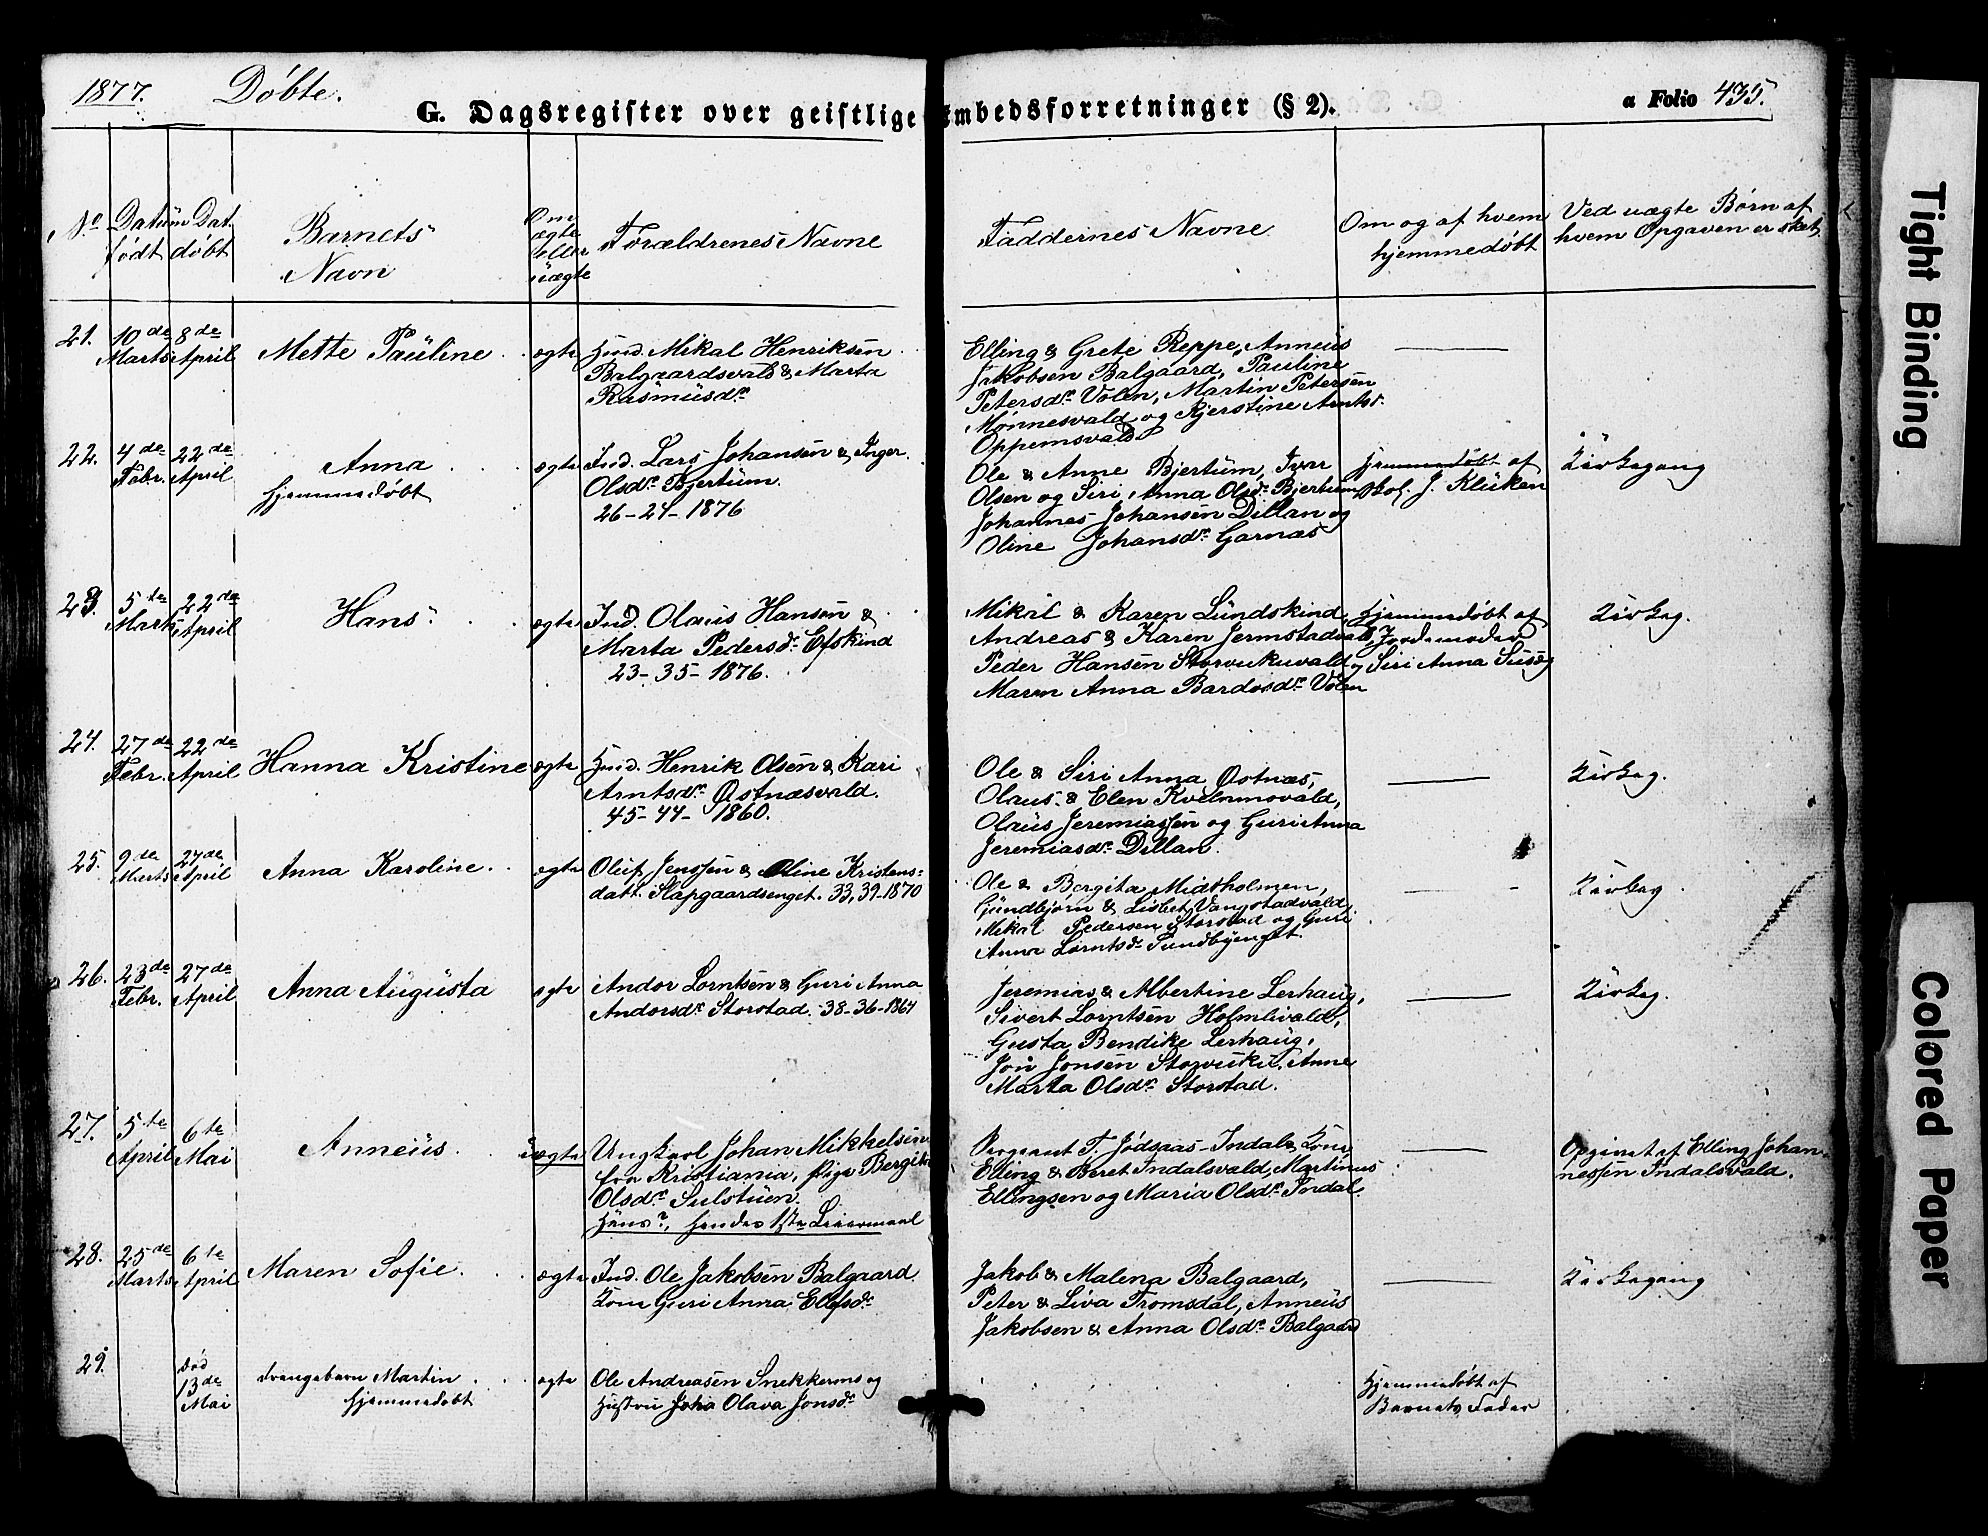 1877. Döbte.
G. Dagsregister over geistlige Embedsforretninger (§ 2).
a Folio 435.
No
Datum födt
Dat. döbt
Barnets Navn
Om ægte eller uægte
Forældrenes Navne
Faddernes Navne
Om og af hvem hjemmedöbt
Ved uægte Börn af hvem Opgaven er sket
21. 10de Marts 8de April Mette Pauline ægte Husd. Mikal Henriksen
Balgaardsvald & Marta
Rasmusdr
Elling & Grete Reppe, Anneus
Jakobsen Balgaard, Pauline
Petersdr Volen, Martin Petersen
Mönnesvald og Kjerstine Arntsdr
Oppemsvald
22. 4de Febr. 22de April Anna ægte Ind. Lars Johansen & Inger
hjemmedöbt
Olsdr Bjertum.
26-24-1876
Ole & Anne Bjertum, Ivar
Olsen og Siri Anna Olsdr Bjertum
Johannes Johansen Dillan og
Oline Johansdr Garnæs
Hjemmedöbt af
Skol. J. Klüken
Kirkegang
23. 5te Marts 22de April Hans ægte Ind. Olaus Hansen &
Marta Pedersdr Efskind
23-35-1876.
Mikal & Karen Lundskind,
Andreas & Karen Jermstadvald
Peder Hansen Storvukuvald og
Maren Anna Bardosdr Volen
Hjemmedöbt af
Jordemoder
Siri Anna Suseg
Kirkeg.
24. 27de Febr. 22de April Hanna Kristine ægte Husd. Henrik Olsen & Kari
Arntsdr Östnæsvald.
45-44-1860.
Ole & Siri Anna Östnæs,
Olaus & Elen Kvelnmovald,
Olaus Jeremiassen og Guri Anna
Jeremiasdr Dillan.
Kirkeg.
25. 9de Marts 27de April Anna Karoline ægte Oluf Jenssen & Oline Kristens-
datt. Slapgaardsenget. 33, 39-1870
Ole & Bergita Midtholmen,
Gundbjörn & Lisbet Vangstadvald,
Mikal Pedersen Storstad og Guri
Anna Lorntsdr Sundbyenget.
Kirkeg
26. 23de Febr. 27de April Anna Augusta ægte Andor Lorntsen & Guri Anna
Andorsdr Storstad. 38-36-1864
Jeremias & Albertine Lerhaug,
Sivert Lorntsen Holmlivald,
Gusta Bendike Lerhaug,
Jon Jonsen Storvuku, Anne
Marta Olsdr Storstad.
Kirkeg.
27. 5te April 6te Mai Anneus uægte Ungkarl Johan Mikkelsen
fra Kristiania, Pige Bergita
Olsdr Sulstuen.
Hans?, hendes 1ste Leiermaal
Sergeant T. Jödsaas-Indal & Kone,
Elling & Beret Indalsvald, Martinus
Ellingsen og Maria Olsdr Indal.
Opgivet af Elling Johan-
nessen Indalsvald.
28. 25de Marts 6te April Maren Sofie ægte Ind. Ole Jakobsen Balgaard
Kone Guri Anna Ellefsdr
Jakob & Malena Balgaard,
Peter & Liva Tromsdal, Anneus
Jakobsen & Anna Olsdr Balgaard
Kirkegang
29. död 13de Mai Drengebarn Martin ægte Ole Andreasen Snekkermo og
hjemmedöbt
Hustru Olava Jonsdr
Hjemmedöbt af
Barnets Fader
Tight Binding
Colored Paper